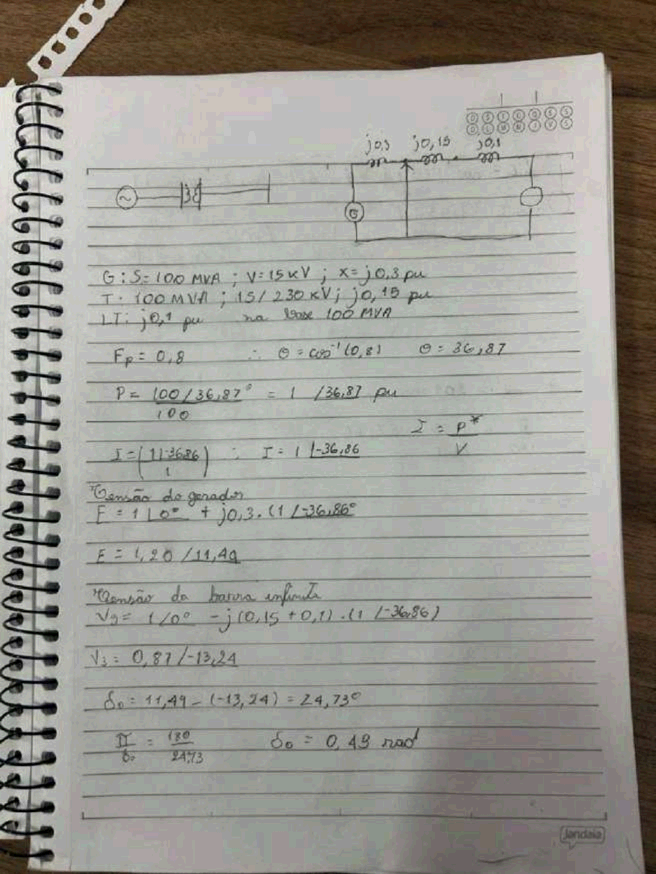 j0,3 j0,15 j0,1
G
G: S=100 MVA ; V=15 kV ; X=j0,3 pu
T: 100 MVA ; 15/230 kV; j0,15 pu
LT: j0,1 pu na base 100 MVA
Fp = 0,8 ∴ θ = cos⁻¹(0,8) θ = 36,87
P = 100 /36,87° = 1 /36,87 pu
100
I = P*
V
I = (1 |-36,86 ∴ I = 1 |-36,86
1)
Tensão do gerador
E = 1 |0° + j0,3 . (1 /-36,86°
E = 1,20 /11,49
Tensão da barra infinita
V3 = 1/0° - j(0,15 + 0,1) . (1 /-36,86)
V3 = 0,87 /-13,24
δ0 = 11,49 - (-13,24) = 24,73°
π = 180 δ0 = 0,43 rad
δ0 24,73
jandaia